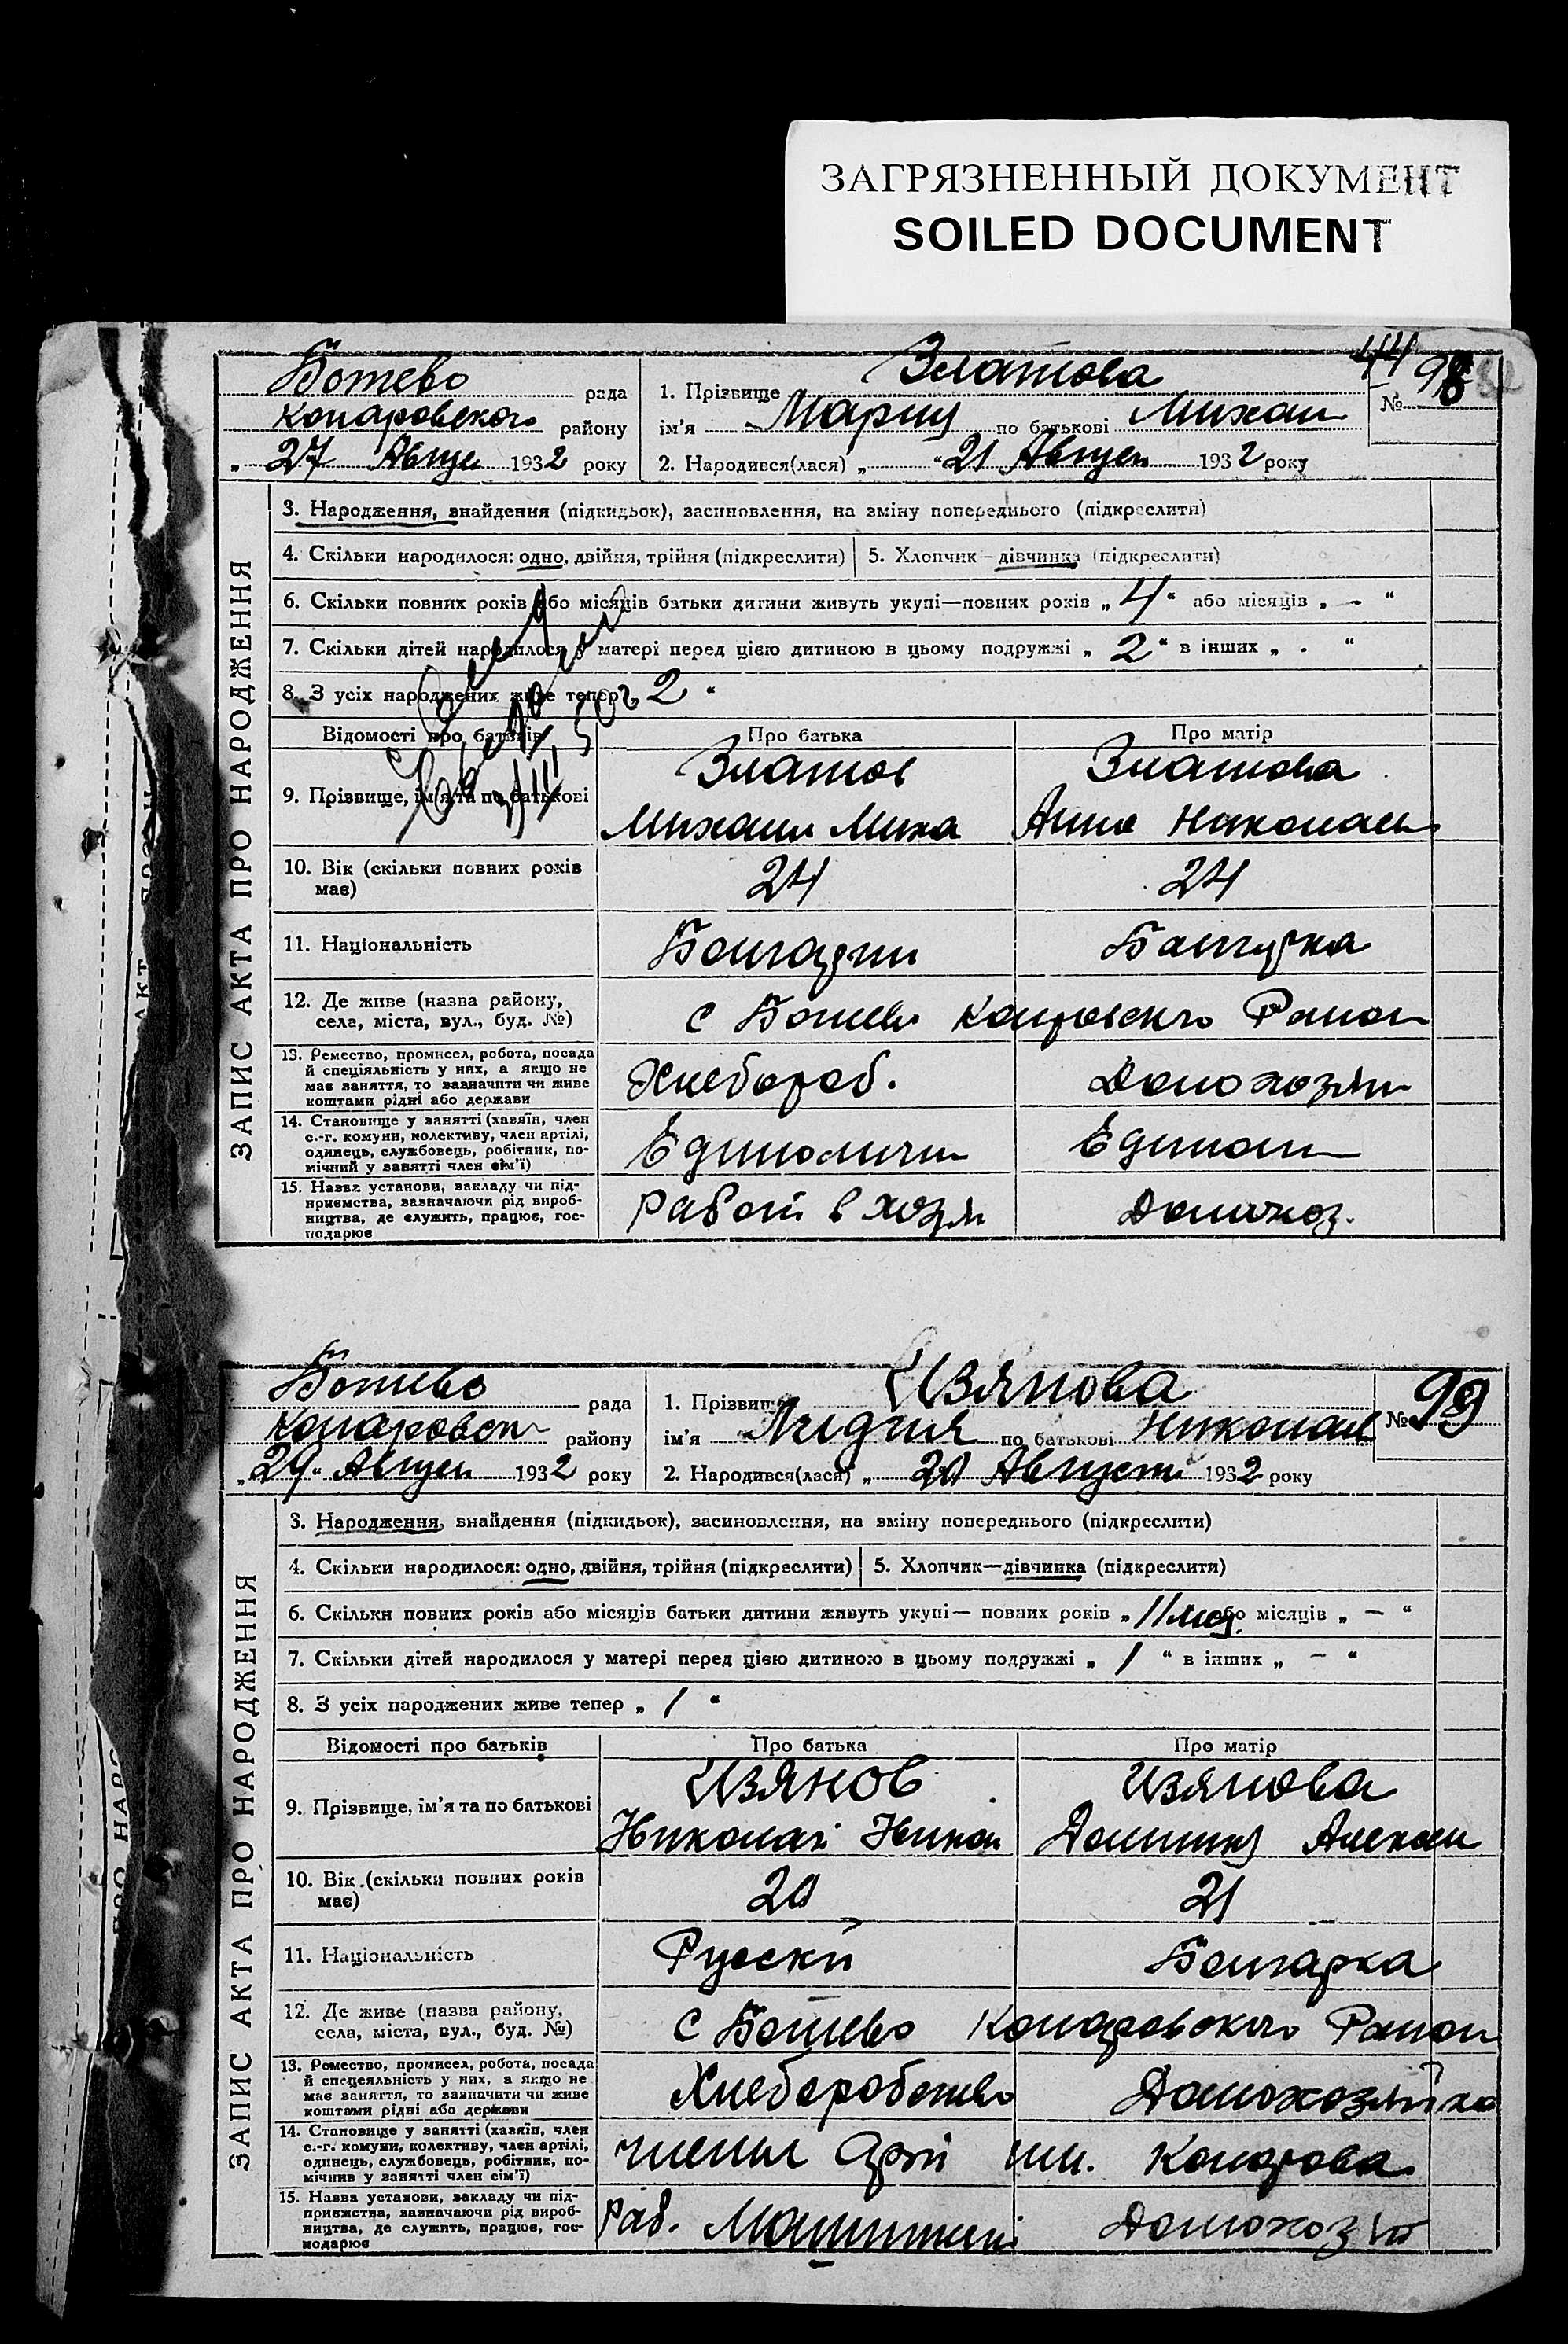 ЗАГРЯЗНЕННЫЙ ДОКУМЕНТ
SOILED DOCUMENT
Ботево рада
Коларовского району
„ 27 Август 1932 року
1. Прізвище Златова
ім'я Мария по батькові Михаил
2. Народився(лася) „ 21 Август 1932 року
№ 98
ЗАПИС АКТА ПРО НАРОДЖЕННЯ
3. Народження, знайдення (підкидьок), засиновлення, на зміну попереднього (підкреслити)
4. Скільки народилося: одно, двійня, трійня (підкреслити) 5. Хлопчик—дівчинка (підкреслити)
6. Скільки повних років або місяців батьки дитини живуть укупі—повних років „ 4 “ або місяців „ – “
7. Скільки дітей народилося у матері перед цією дитиною в цьому подружжі „ 2 “ в інших „ . “
8. З усіх народжених живе тепер 2 “
Відомості про батьків Про батька Про матір
9. Прізвище, ім'я та по батькові Златов Златова
Михаил Миха Анна Николаев
10. Вік (скільки повних років має) 24 24
11. Національність Болгарин Болгарка
12. Де живе (назва району, села, міста, вул., буд. №) с Ботево Коларовского Район
13. Ремество, промисел, робота, посада й спеціяльність у них, а якщо не має заняття, то зазначити чи живе коштами рідні або держави Хлебороб. Домохозяй
14. Становище у занятті (хазяїн, член с.-г. комуни, колективу, член артілі, одинець, службовець, робітник, помічний у занятті член сім'ї) Единолични Единол
15. Назва установи, закладу чи підприємства, зазначаючи рід виробництва, де служить, працює, господарює Работ в хозя Домохоз.
Ботево рада
Коларовск району
„ 29 “ Август 1932 року
1. Прізвище Извянова
ім'я Лидия по батькові Николаев
2. Народився(лася) „ 20 Августа 1932 року
№ 99
ЗАПИС АКТА ПРО НАРОДЖЕННЯ
3. Народження, знайдення (підкидьок), засиновлення, на зміну попереднього (підкреслити)
4. Скільки народилося: одно, двійня, трійня (підкреслити) 5. Хлопчик—дівчинка (підкреслити)
6. Скільки повних років або місяців батьки дитини живуть укупі— повних років „ 11 мец. або місяців „ – “
7. Скільки дітей народилося у матері перед цією дитиною в цьому подружжі „ 1 “ в інших „ – “
8. З усіх народжених живе тепер „ 1 “
Відомості про батьків Про батька Про матір
9. Прізвище, ім'я та по батькові Изянов Изянова
Николай Никол Алексан
10. Вік (скільки повних років має) 20 21
11. Національність Русски Болгарка
12. Де живе (назва району, села, міста, вул., буд. №) с Ботево Коларовского Район
13. Ремество, промисел, робота, посада й спецеяльність у них, а якщо не має заняття, то зазначити чи живе коштами рідні або держави Хлеборобство Домохозяйка
14. Становище у занятті (хазяїн, член с.-г. комуни, колективу, член артілі, одинець, службовець, робітник, помічник у занятті член сім'ї) члены арт им. Коларова
15. Назва установи, закладу чи підприємства, зазначаючи рід виробництва, де служить, працює, господарює Раб. Домохоз